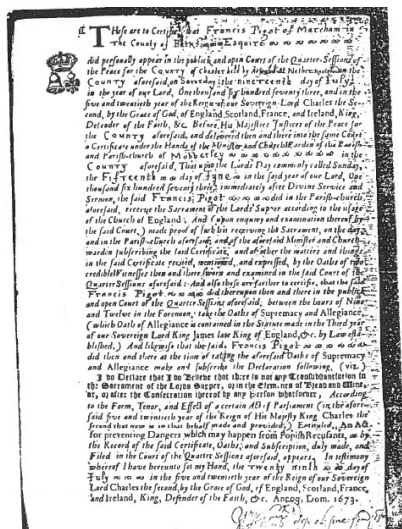 These are to Certifie, that Francis Pigot of Marcham in
The County of Berks Esquire
did personally appear in the publick and open Court of the Quarter-Sessions of
the Peace for the County of Chester held by at Nether on
County aforesaid, on Saturday the nineteenth day of July
in the year of our Lord, One thousand six hundred seventy three, and in the
five and twentieth year of the Reign of our Sovereign Lord Charles the Se-
cond, by the Grace of God, of England, Scotland, France, and Ireland, King,
Defender of the Faith, &c. Before His Majesties Justices of the Peace for
the COUNTY aforesaid, and delivered then and there into the same Court
a Certificate under the Hands of the Minister and Churchwarden of the Parish
and Parish-church of Mobberley in the
COUNTY aforesaid, That upon the Lords Day commonly called Sunday,
the Fifteenth day of June in the said year of our Lord, One
thousand six hundred seventy three, immediately after Divine Service and
Sermon, the said Francis Pigot did in the Parish-church
aforesaid, receive the Sacrament of the Lords Supper according to the usage
of the Church of England; And (upon enquiry and examination thereof by
the said Court,) made proof of such his receiving the Sacrament, on the day,
and in the Parish-church aforesaid, and of the aforesaid Minister and Church-
warden subscribing the said Certificate, and of other the matters and things
in the said Certificate recited, mentioned, and expressed, by the Oaths of two
credible Witnesses then and there sworn and examined in the said Court of the
Quarter Sessions aforesaid: And also these are further to certifie, that the said
Francis Pigot did thereupon then and there in the publick
and open Court of the Quarter Sessions aforesaid, between the hours of Nine
and Twelve in the Forenoon, take the Oaths of Supremacy and Allegiance
(which Oath of Allegiance is contained in the Statute made in the Third year
of our Sovereign Lord King James late King of England, &c. by Law esta-
blished,) And likewise that the said, Francis Pigot
did then and there at the time of taking the aforesaid Oaths of Supremacy
and Allegiance make and subscribe the Declaration following, (viz.)
I do Declare that I do Believe that there is not any Transubstantiation in
the Sacrament of the Lords Supper, or in the Elements of Bread and Wine,
at, or after the Consecration thereof by any Person whatsoever, According
to the Form, Tenor, and Effect of a certain Act of Parliament (in the afore-
said five and twentieth year of the Reign of His Majesty King Charles the
second that now is in that behalf made and provided,) Entituled, An Act
for preventing Dangers which may happen from Popish Recusants, as by
the Record of the said Certificate, Oaths, and Subscription, duly made, and
Filed in the Court of the Quarter Sessions aforesaid, appears. In testimony
whereof I have hereunto set my Hand, the Twenty ninth day of
July in the five and twentieth year of the Reign of our Sovereign
Lord Charles the second, by the Grace of God, of England, Scotland, France,
and Ireland, King, Defender of the Faith, &c. Annoq; Dom. 1673.